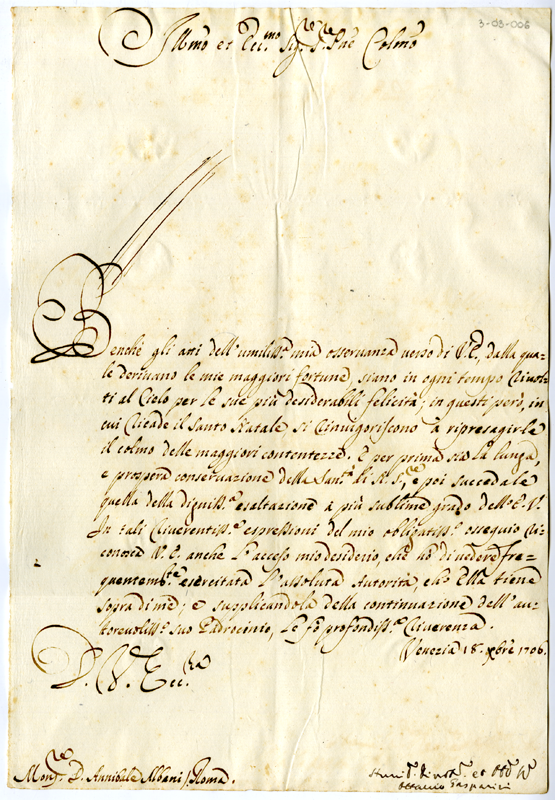 3-03-006
Illmo et Ecc.mo Sig.re S.re Pne Colmo
Benche gli atti dell'umiliss.a mia osservanza verso di V.E., dalla qua-
le derivano le mie maggiori fortune, siano in ogni tempo rivol-
ti al Cielo per le sue più desiderabili felicità; in questi però, in
cui ricade il Santo Natale si rinvigoriscono à ripresagirle
il colmo delle maggiori contentezze. E per prima sia la lunga,
e prospera conservazione della San.tà di N. S.re, e poi succeda le
quella della digniss.a esaltazione à più sublime grado dell'E.V.
In tali riverentiss.e espressioni del mio obligatiss.o ossequio ri-
conosca V.E. anche l'acceso mio desiderio, che hò di vedere fre-
quentem.te esercitata l'assoluta Autorità, che Ella tiene
sopra di mè; e supplicandola della continuazione dell'au-
torevoliss.o suo Padrocinio, le fò profondiss.a riverenza.
Venezia 18. xbre 1706.
D. V. Ecc.za
Mons.re D. Annibale Albani / Roma.
et
Ottavio Gasparini